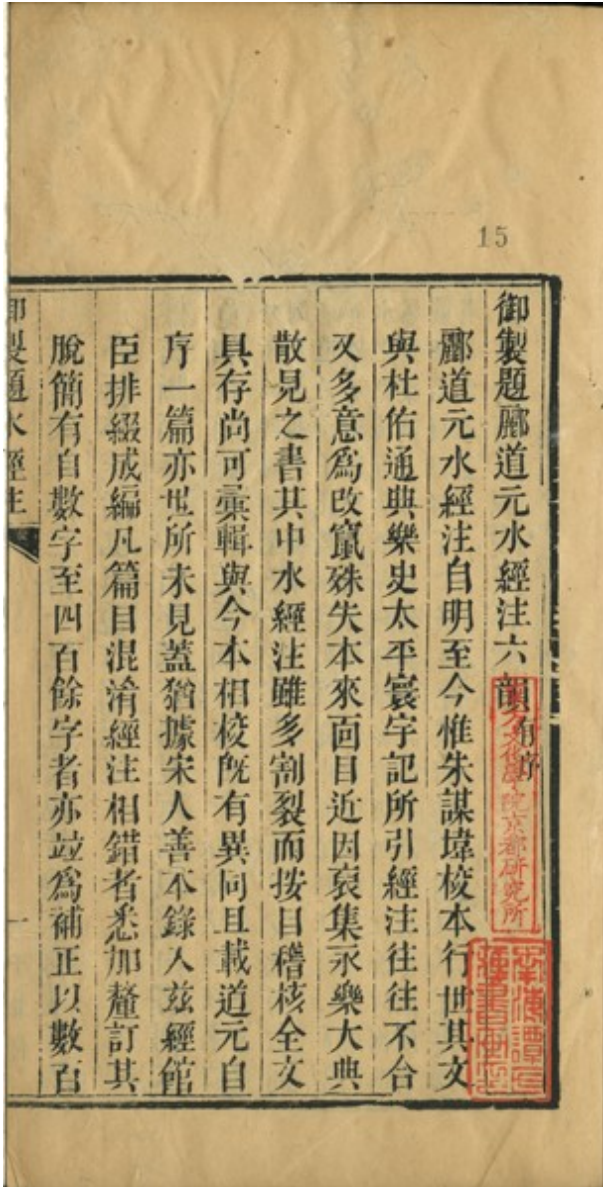 15
御製題酈道元水經注六韻有序
酈道元水經注自明至今惟朱謀㙔校本行世其文
與杜佑通典樂史太平寰宇記所引經注往往不合
又多意爲改竄殊失本來面目近因裒集永樂大典
散見之書其中水經注雖多割裂而按目稽核全文
具存尚可彙輯與今本相校旣有異同且載道元自
序一篇亦世所未見蓋猶據宋人善本錄入茲經館
臣排綴成編凡篇目混淆經注相錯者悉加釐訂其
脫簡有自數字至四百餘字者亦竝爲補正以數百
御製題水經注
一
東方文化學院京都研究所